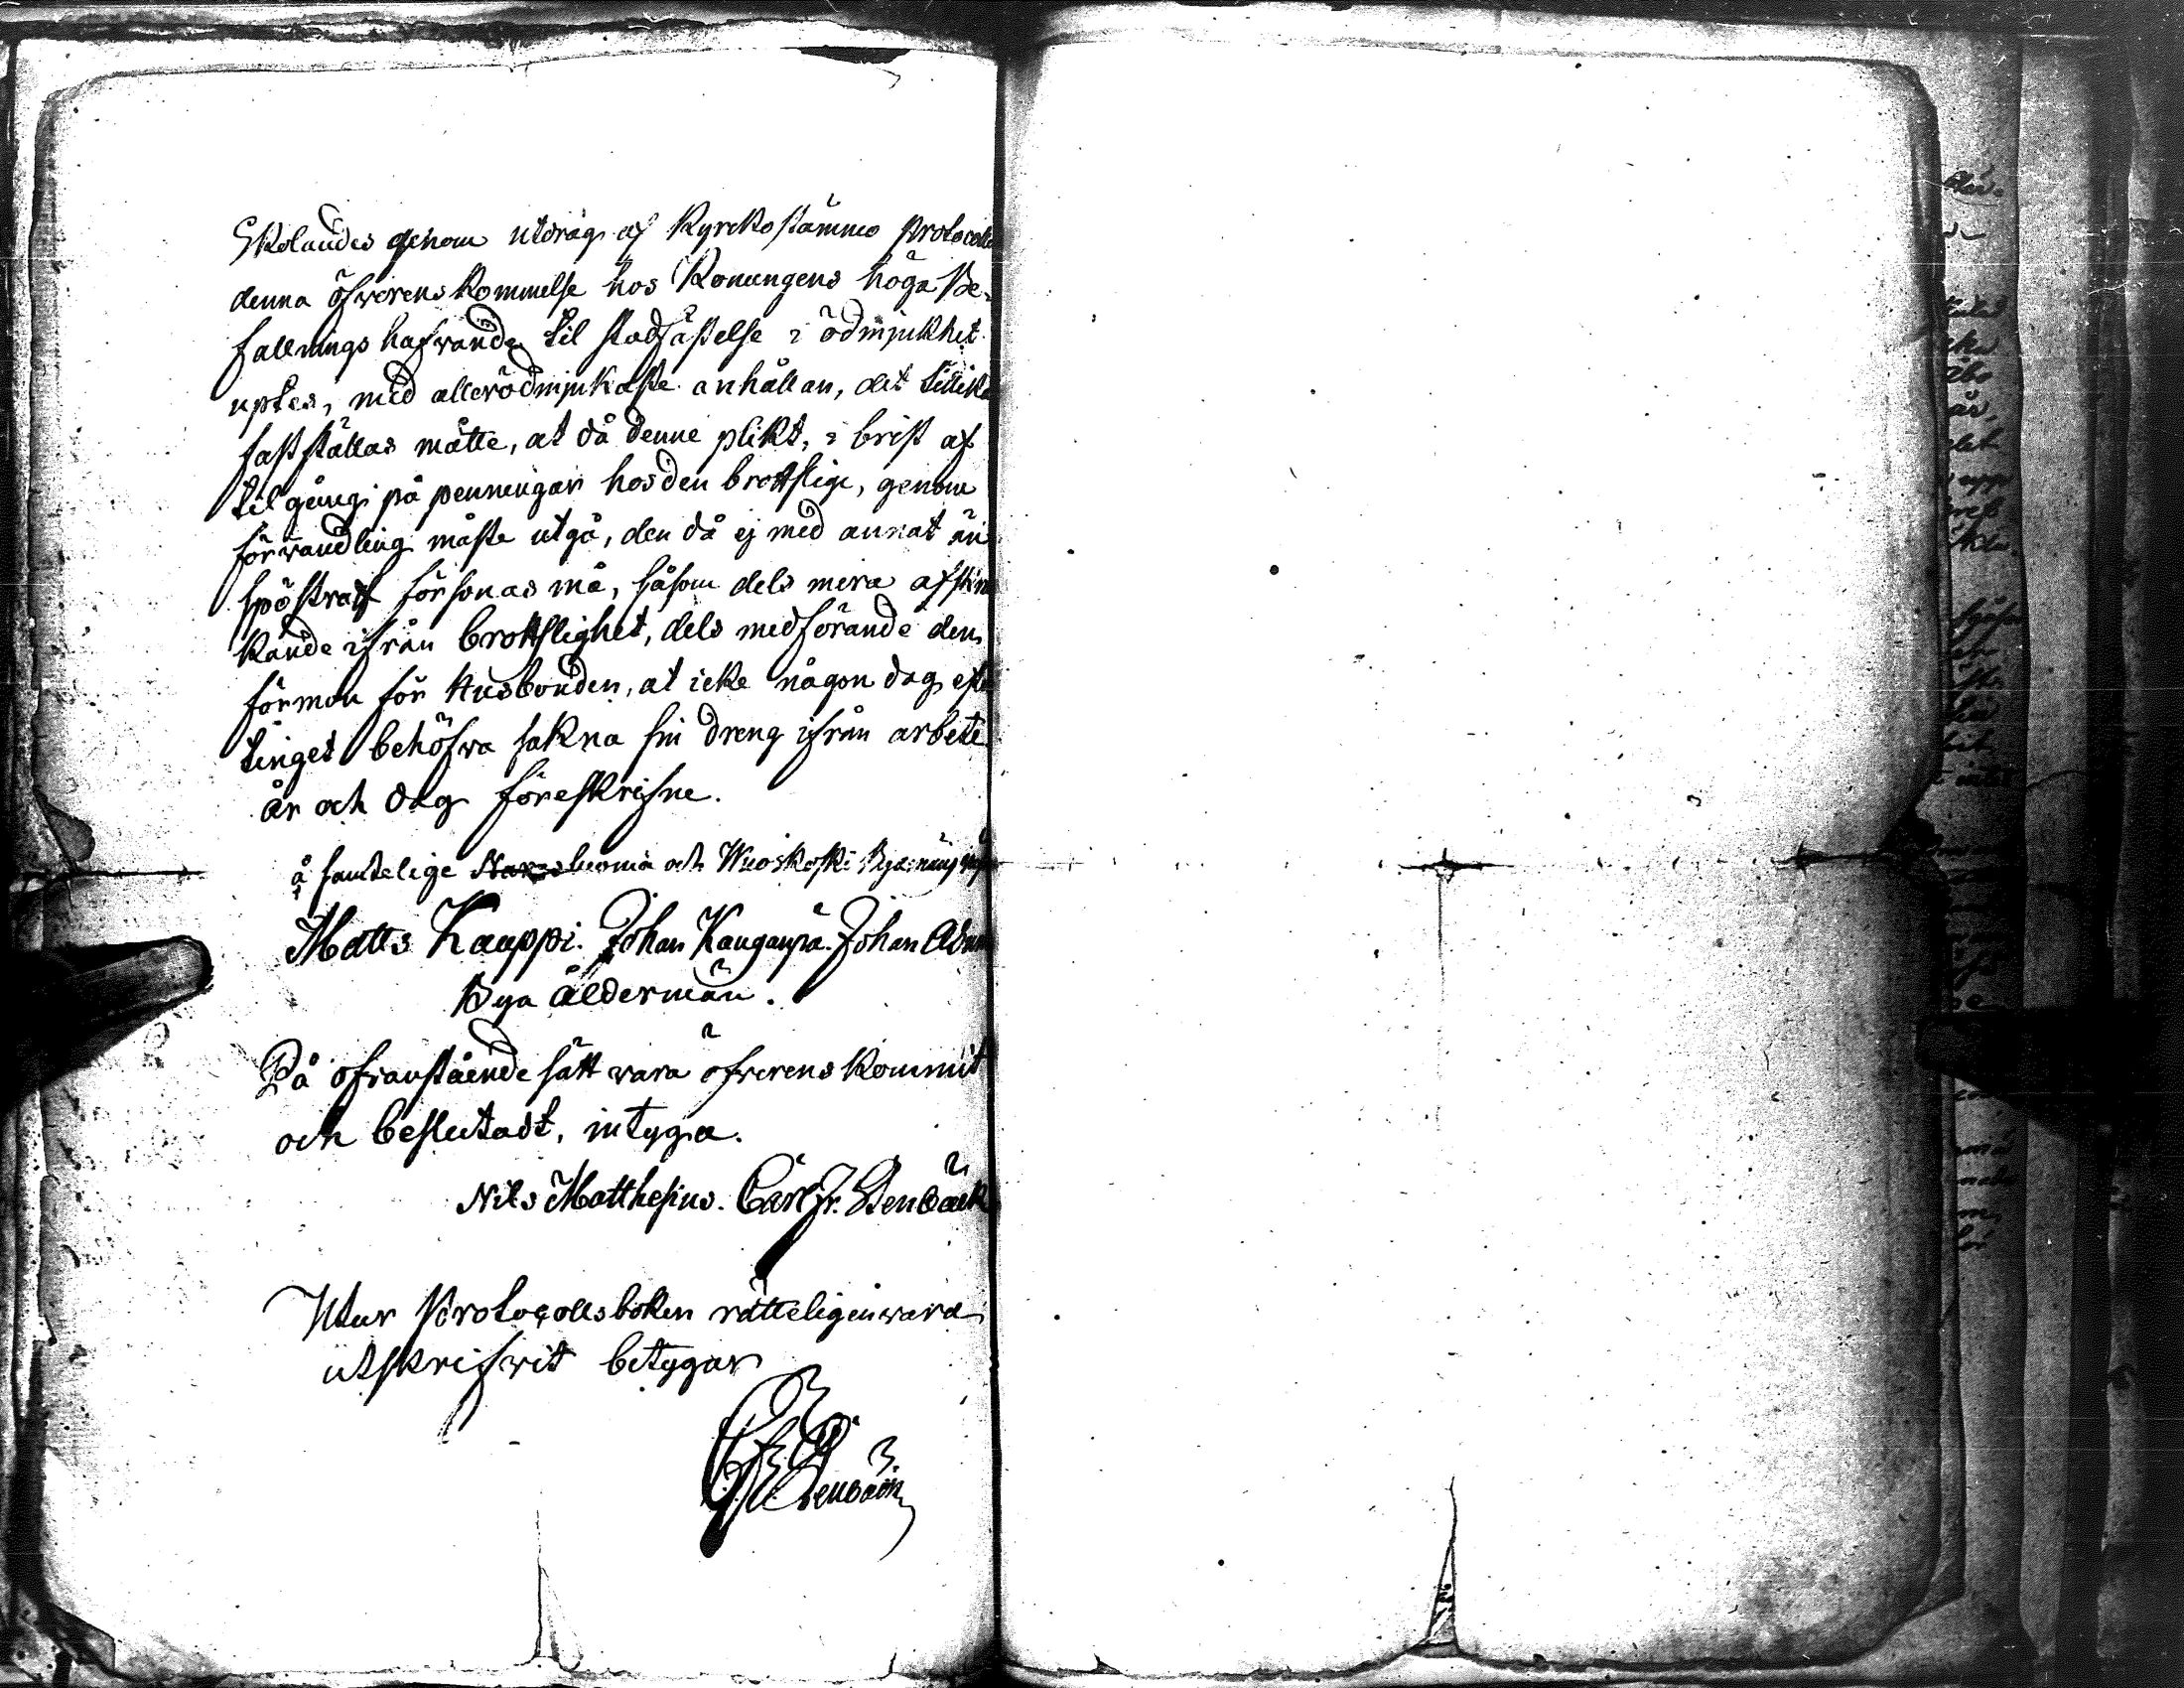 Skolandes genom utdrag af Kyrckostämmo Protocoll
denna öfverenskommelse hos Konungens höga Be-
fallningshafwande til stadfästelse i ödmjukhet
uptes, med allerödmjukaste anhållan, det tillika
fastställas måtte, at då denne plikt, i brist af
tilgång på penningar hos den brottslige, genom
förwandling måste utgå, den då ej med annat än
spöstraff försonas må, såsom dels mera afskrä
kande ifrån brottslighet, dels medförande den
förmon för Husbonden, at icke någon dag efter
tinget behöfwa sakna sin dreng ifrån arbete.
år och dag föreskrifne.
å samtelige och Wuoskoski Bya
Matts Kauppi. Johan Kangaspä. Johan
Bya Åldermän.
På ofvanstående sätt wara öfverenskommit
och beslutadt, intyga.
Nils Matthesius. Carl Fr. Stenbäck
Utur Protocollsboken rätteligen vara
utskrifwit betygar
C. F. Stenbäck